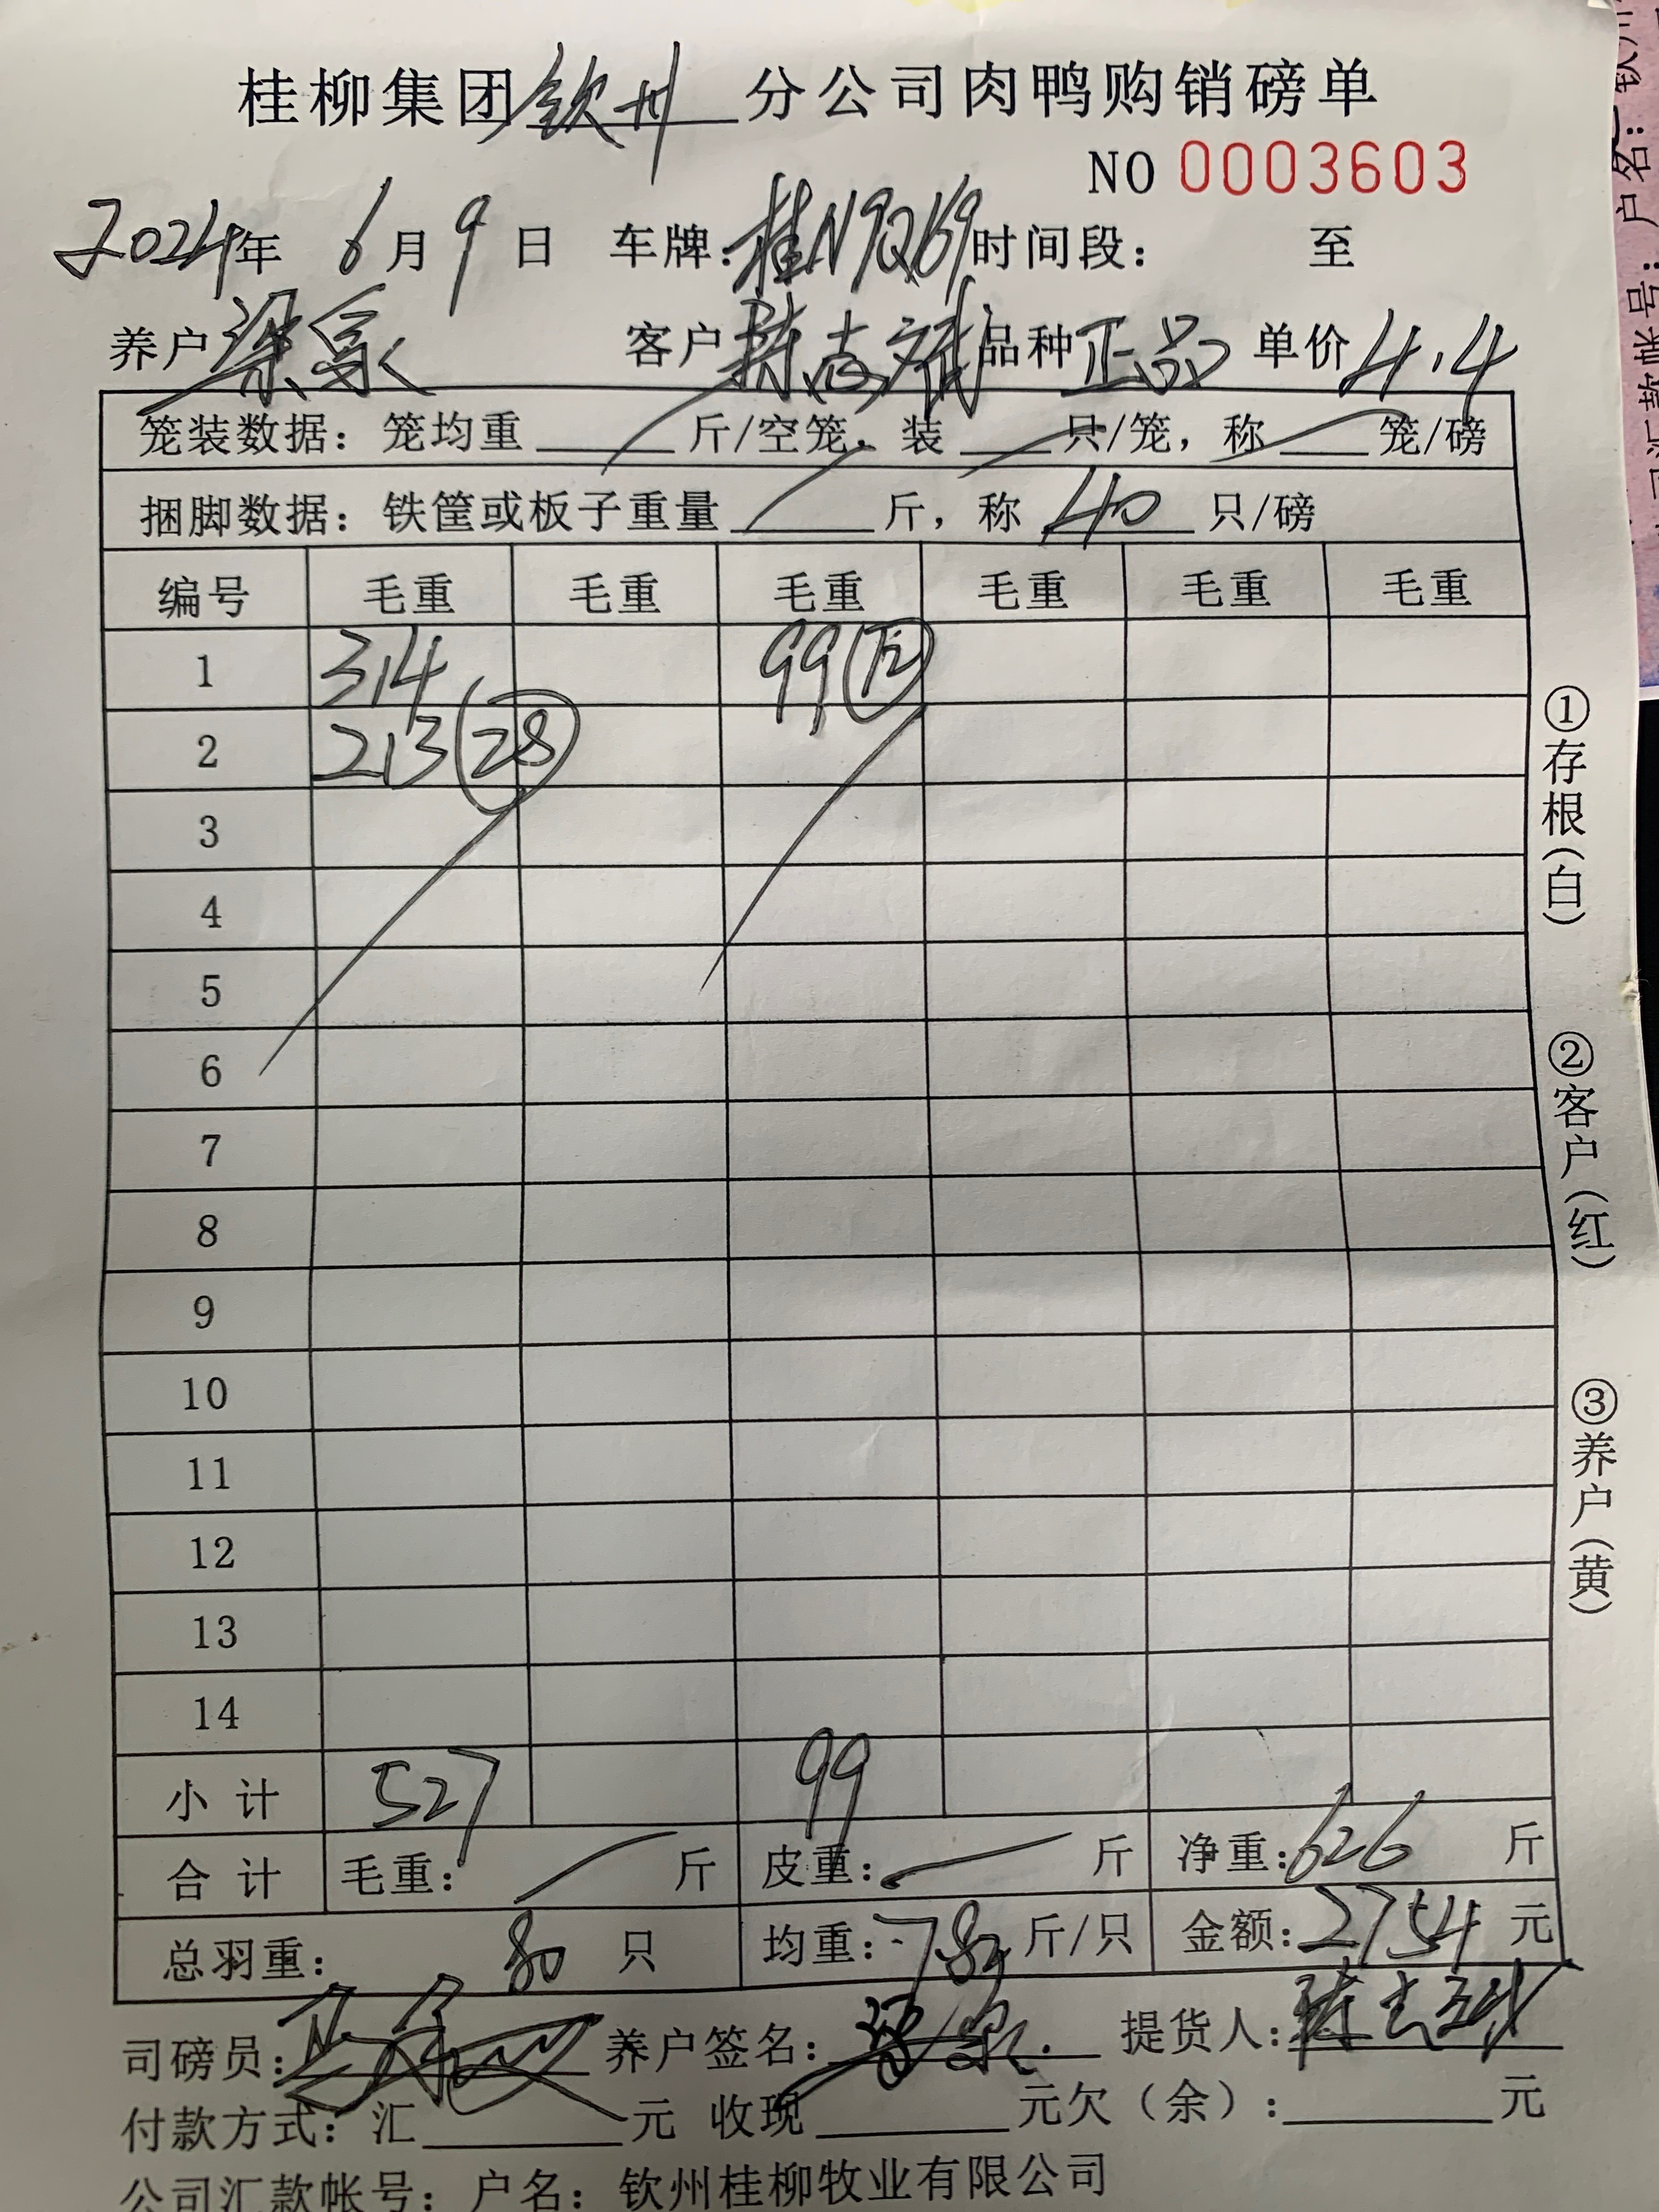 桂柳集团钦州分公司肉鸭购销磅单
NO 0003603
2024年 6月9日 车牌:桂N9Q269时间段: 至
养户梁家 客户陈志斌品种正品 单价4.4
笼装数据: 笼均重 斤/空笼, 装 只/笼, 称 笼/磅
捆脚数据: 铁筐或板子重量 斤, 称 40 只/磅
编号 毛重 毛重 毛重 毛重 毛重 毛重
1 314 99(12)
2 213(28)
3
4
5
6
7
8
9
10
11
12
13
14
小 计 527 99
合 计 毛重: 斤 皮重: 斤 净重:626 斤
总羽重: 80 只 均重:7.83斤/只 金额:2754元
司磅员: 养户签名: 提货人:陈志斌
付款方式: 汇 元 收现 元欠(余): 元
公司汇款帐号: 户名: 钦州桂柳牧业有限公司
①存根(白)
②客户(红)
③养户(黄)